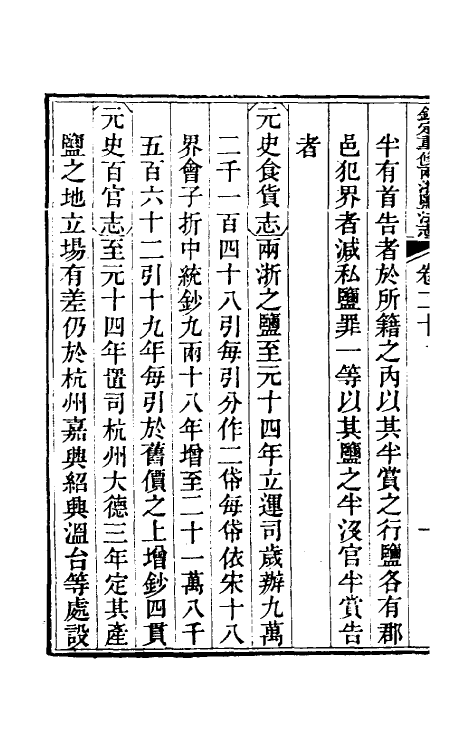 欽定重修兩浙鹽法志　卷二十　一
半有首告者於所籍之內以其半賞之行鹽各有郡
邑犯界者減私鹽罪一等以其鹽之半沒官半賞告
者
元史食貨志兩浙之鹽至元十四年立運司歲辦九萬
二千一百四十八引每引分作二俗每俗依宋十八
界會子折中統鈔九兩十八年增至二十一萬八千
五百六十二引十九年每引於舊價之上增鈔四貫
元史百官志至元十四年置司杭州大德三年定其產
鹽之地立場有差仍於杭州嘉興紹興溫台等處設